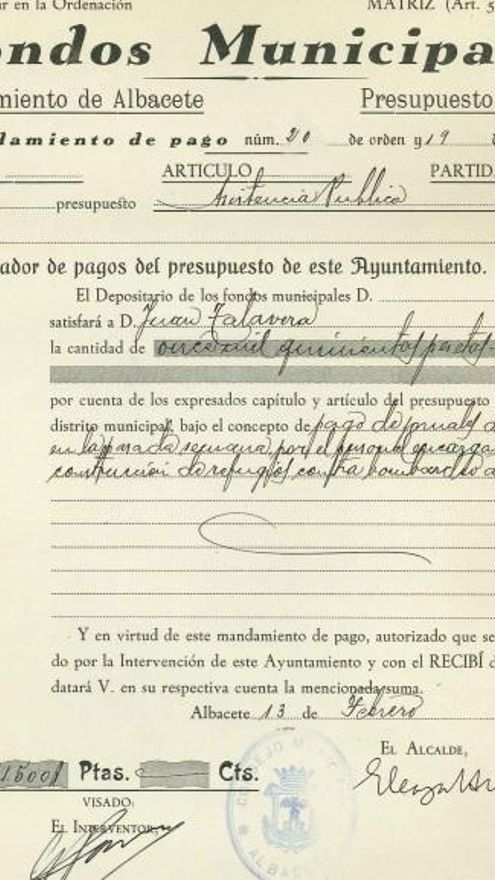 r en la Ordenación MATRIZ (Art. 5
ondos Municipa
miento de Albacete Presupuesto
lamiento de pago núm. 20 de orden y 19
ARTICULO PARTID
presupuesto Asistencia Publica
ador de pagos del presupuesto de este Ayuntamiento.
El Depositario de los fondos municipales D.
satisfará a D. Juan Talavera
la cantidad de once mil quinientas pesetas
por cuenta de los expresados capítulo y artículo del presupuesto
distrito municipal, bajo el concepto de pago de jornales d
en la pasada semana por el personal encarga
construcción de refugios contra bombardeo a
Y en virtud de este mandamiento de pago, autorizado que se
do por la Intervención de este Ayuntamiento y con el RECIBÍ d
datará V. en su respectiva cuenta la mencionada suma.
Albacete 13 de Febrero
EL ALCALDE,
1500 Ptas. Cts.
VISADO:
EL INTERVENTOR,
ALBACE